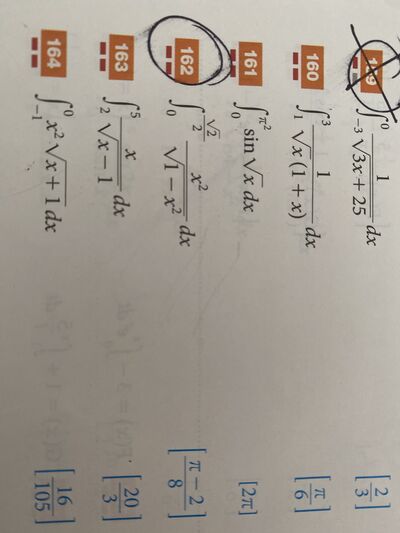 159 ∫_{-3}^{0} 1/√(3x + 25) dx [2/3]
160 ∫_{1}^{3} 1/(√x (1 + x)) dx [π/6]
161 ∫_{0}^{π²} sin √x dx [2π]
162 ∫_{0}^{√2/2} x²/√(1 − x²) dx [(π − 2)/8]
163 ∫_{2}^{5} x/√(x − 1) dx [20/3]
164 ∫_{-1}^{0} x² √(x + 1) dx [16/105]